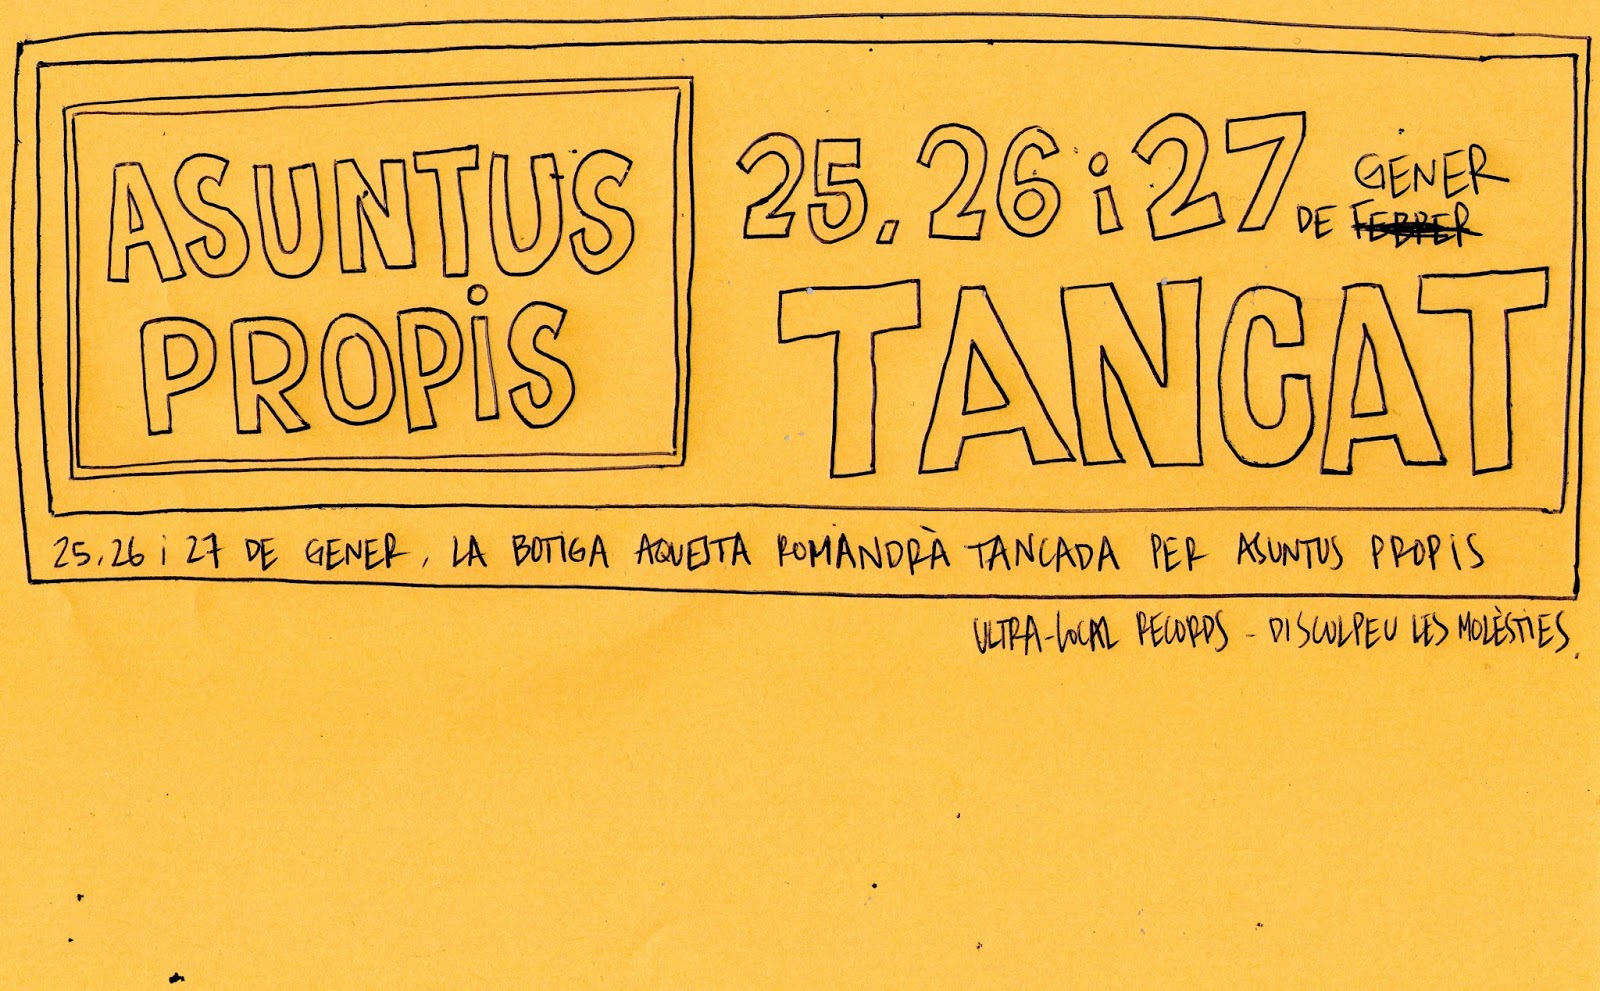 ASUNTUS
PROPIS
25, 26 i 27
GENER
DE FEBRER
TANCAT
25, 26 i 27 DE GENER, LA BOTIGA AQUESTA ROMANDRÀ TANCADA PER ASUNTUS PROPIS
ULTRA-LOCAL RECORDS - DISCULPEU LES MOLÈSTIES.